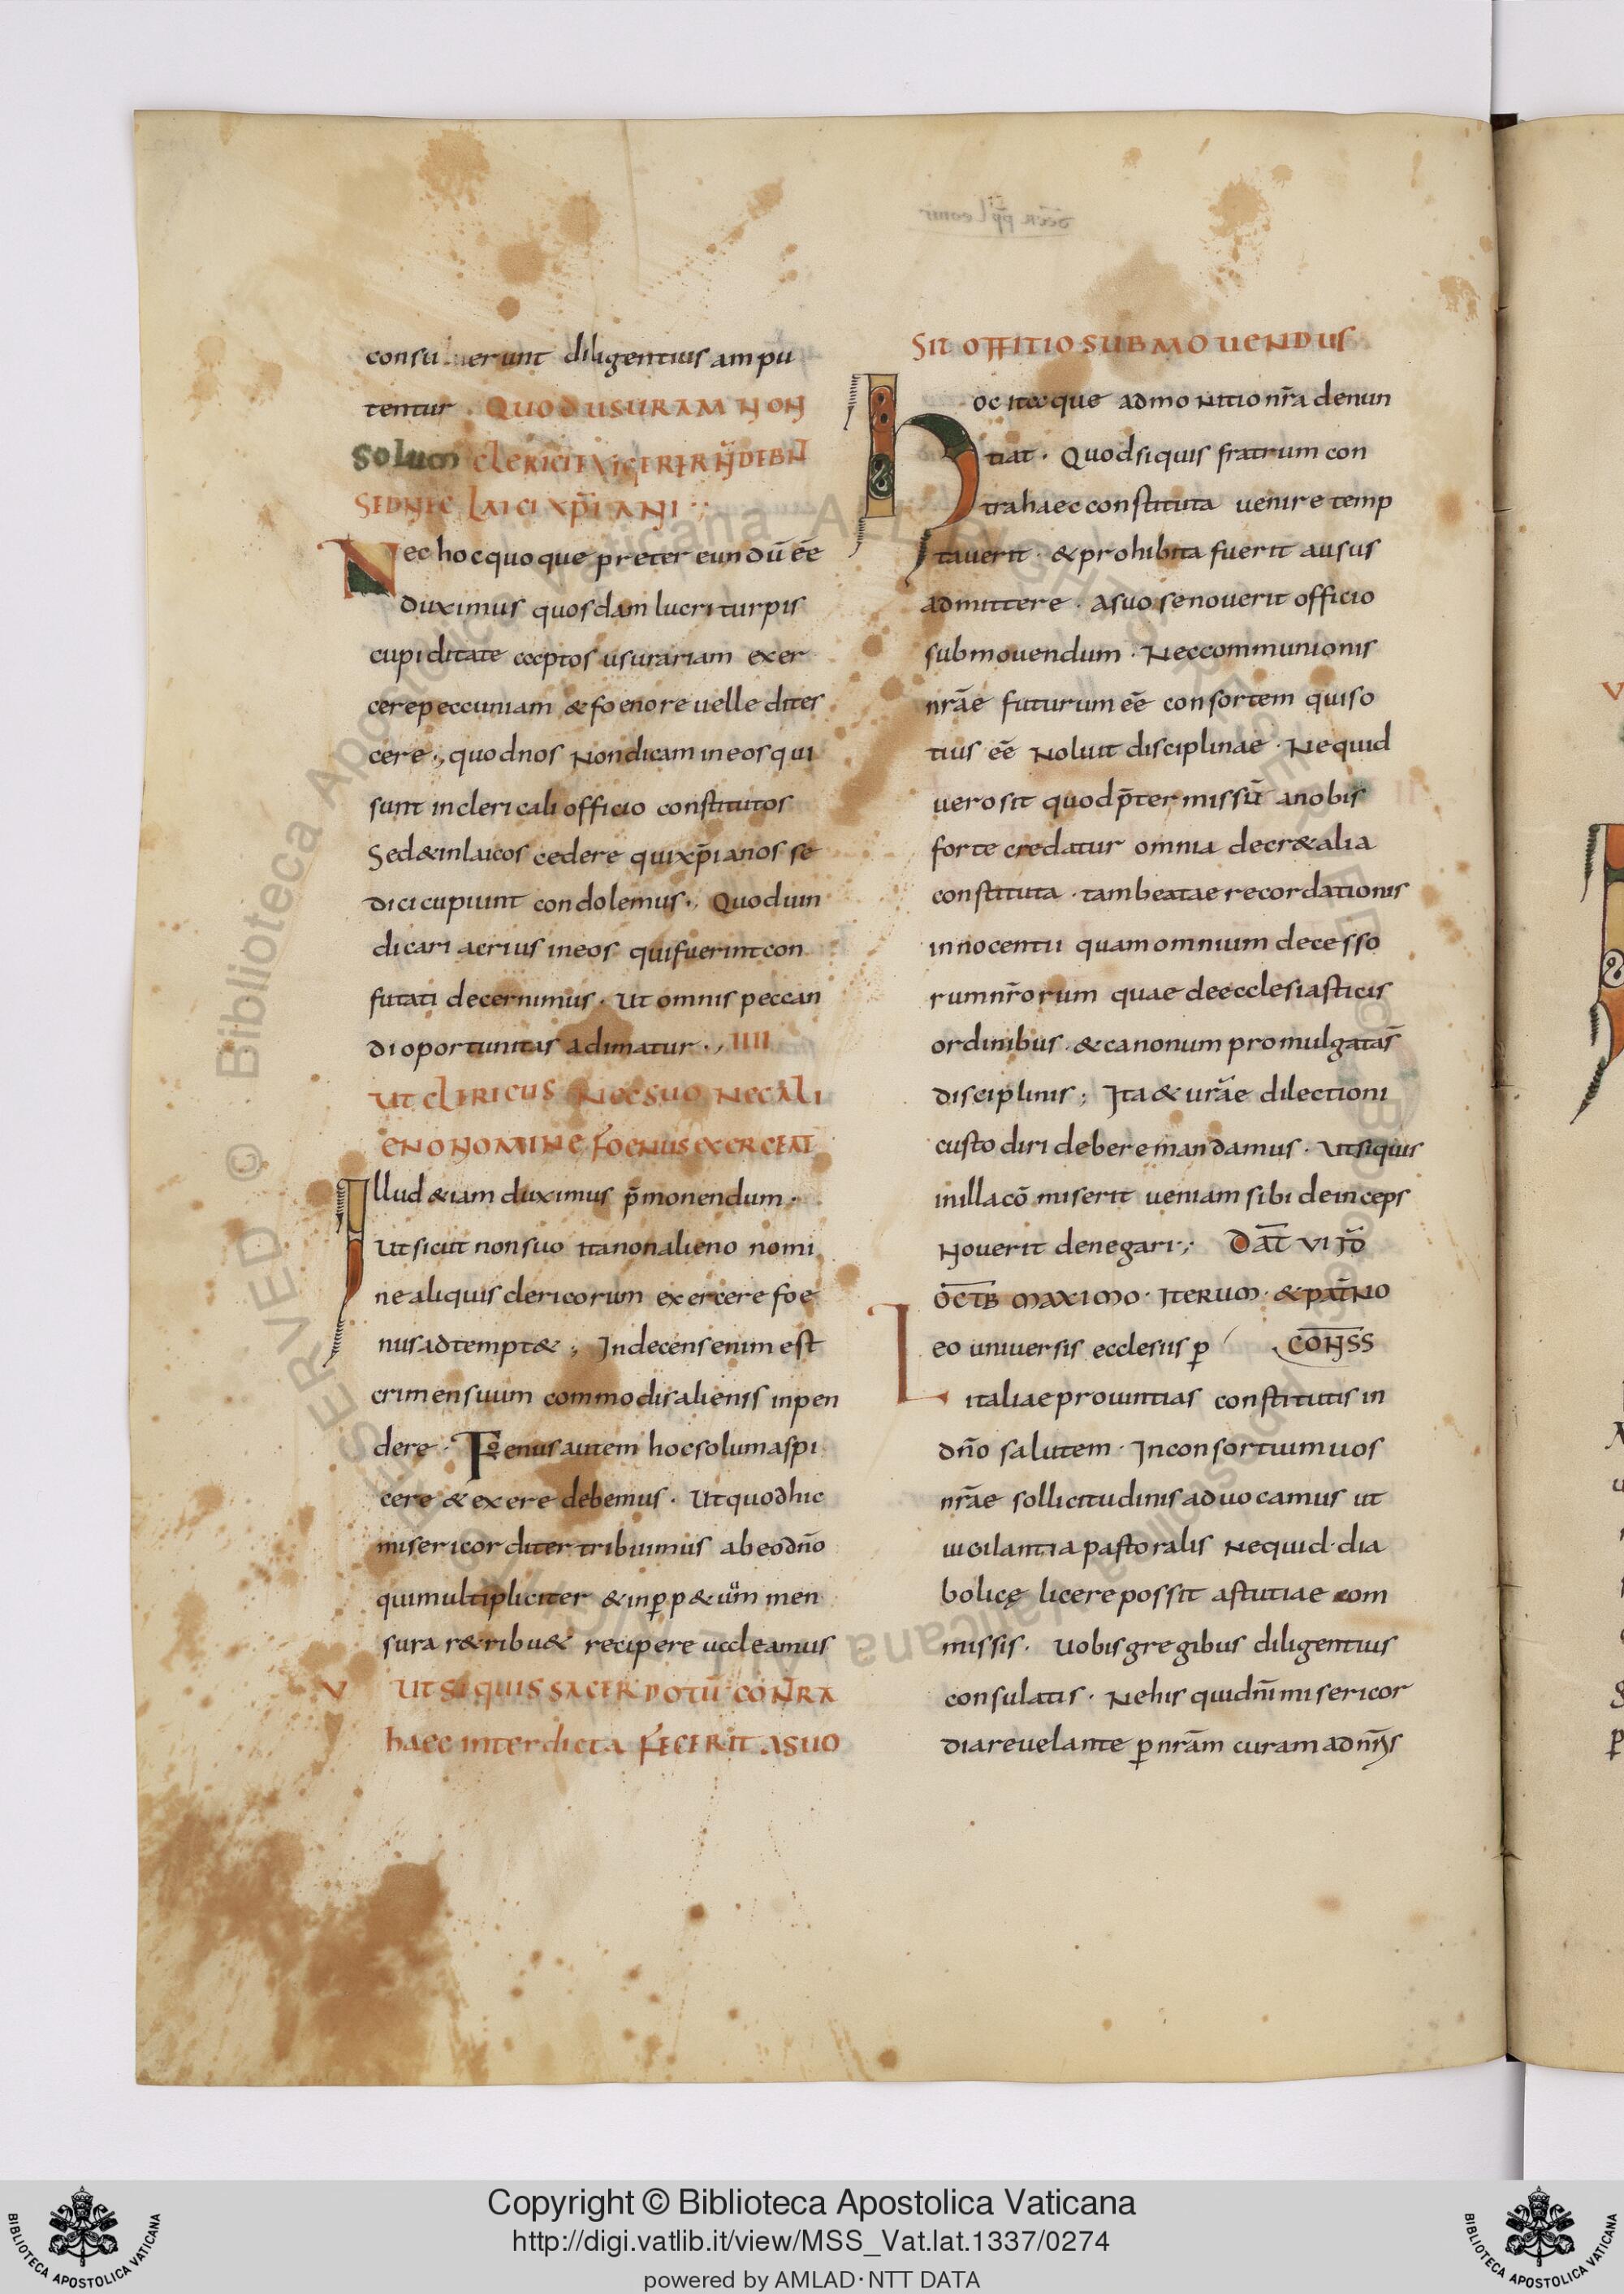 consuluerunt diligentius ampu
tentur · QUOD USURAM NON
Solum clericii exigerer nn debn
SED NEC LAICI XP̄IANI ·;
Nec hoc quoque preter eundū eē
duximus quosdam lucri turpis
cupiditate coeptos usurariam exer
cere peccuniam & foenore uelle dites
cere ·, quod nos Non dicam in eos qui
sunt in clericali officio constitutos
Sed & in laicos cedere qui xp̄ianos se
dici cupiunt condolemus ·, Quod uin
dicari acrius in eos qui fuerint con
futati decernimus · Ut omnis peccan
di oportunitas adimatur ·, IIII
UT CLERICUS NEC SUO NEC ALI
ENO NOMINE FOENUS EXERCEAT
Illud &iam duximus p̄monendum ·
Ut sicut non suo ita non alieno nomi
ne aliquis clericorum exercere foe
nus adtempt& ; Indecens enim est
crimen suum commodis alienis inpen
dere · Foenus autem hoc solum aspi
cere & exere debemus · Ut quod hic
misericorditer tribuimus ab eo dn̄o
qui multipliciter & in ꝑp&uū men
sura r&ribu& recipere ualeamus
V UT SI QUIS SACERDOTŪ CONTRA
haec interdicta FECERIT A SUO
SIT OFFITIO SUBMOUENDUS
hoc itaque admoNitio nr̄a denun
tiat · Quod si quis fratrum con
tra haec constituta uenire temp
tauerit · & prohibita fuerit ausus
admittere · A suo se nouerit officio
submouendum · Nec communionis
nrāe futurum eē consortem qui so
tius eē Noluit disciplinae · Ne quid
uero sit quod p̄termissū a nobis
forte credatur omnia decr&alia
constituta · tam beatae recordationis
innocentii quam omnium decesso
rum nr̄orum quae de ecclesiasticis
ordinibus & canonum promulgatas̄
disciplinis ; Ita & urāe dilectioni
custodiri debere mandamus · Ut si quis
in illa cō miserit ueniam sibi deinceps
Nouerit denegari ; DAT̄ VI ID̄
OCTB̄ MAXIMO · ITERUM · & PAT̄RNO
Leo uniuersis ecclesiis ꝑ CON̄SS
italiae prouintias constitutis in
dn̄o salutem · In consortium uos
nrāe sollicitudinis aduocamus ut
uigilantia pastoralis Ne quid · dia
bolicę licere possit astutiae com
missis · Uobis gregibus diligentius
consulatis · Ne his quid nī misericor
dia reuelante ꝑ nrām curam ad nr̄is
Copyright © Biblioteca Apostolica Vaticana
http://digi.vatlib.it/view/MSS_Vat.lat.1337/0274
powered by AMLAD·NTT DATA
BIBLIOTECA APOSTOLICA VATICANA
BIBLIOTECA APOSTOLICA VATICANA